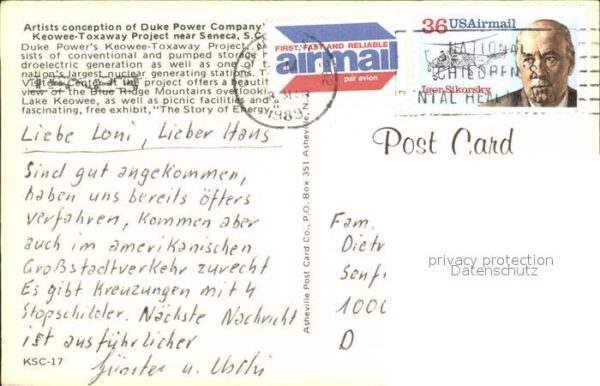 Artists conception of Duke Power Company'
Keowee-Toxaway Project near Seneca, S.C.
Duke Power's Keowee-Toxaway Project,
sists of conventional and pumped storage
droelectric generation as well as one of
nation's largest nuclear generating stations. T
Visitors Center and project offers a beautif
view of the Blue Ridge Mountains overlooki
Lake Keowee, as well as picnic facilities and
fascinating, free exhibit, "The Story of Energy
FIRST, FAST AND RELIABLE
airmail
par avion
36 USAirmail
Igor Sikorsky
NATIONAL
CHILDREN
NTAL HEA
1989
Post Card
Liebe Loni, Lieber Hans
Sind gut angekommen,
haben uns bereils öfters
verfahren, kommen aber
auch im amerikanischen
Großstadtverkehr zurecht
Es gibt Kreuzungen mit 4
Stopschilder. Nächste Nachricht
ist ausführlicher
Günter u. Uschi
KSC-17
Asheville Post Card Co., P.O. Box 351 Asheville, N.
Fam.
Dietr
Senf
1000
D
privacy protection
Datenschutz